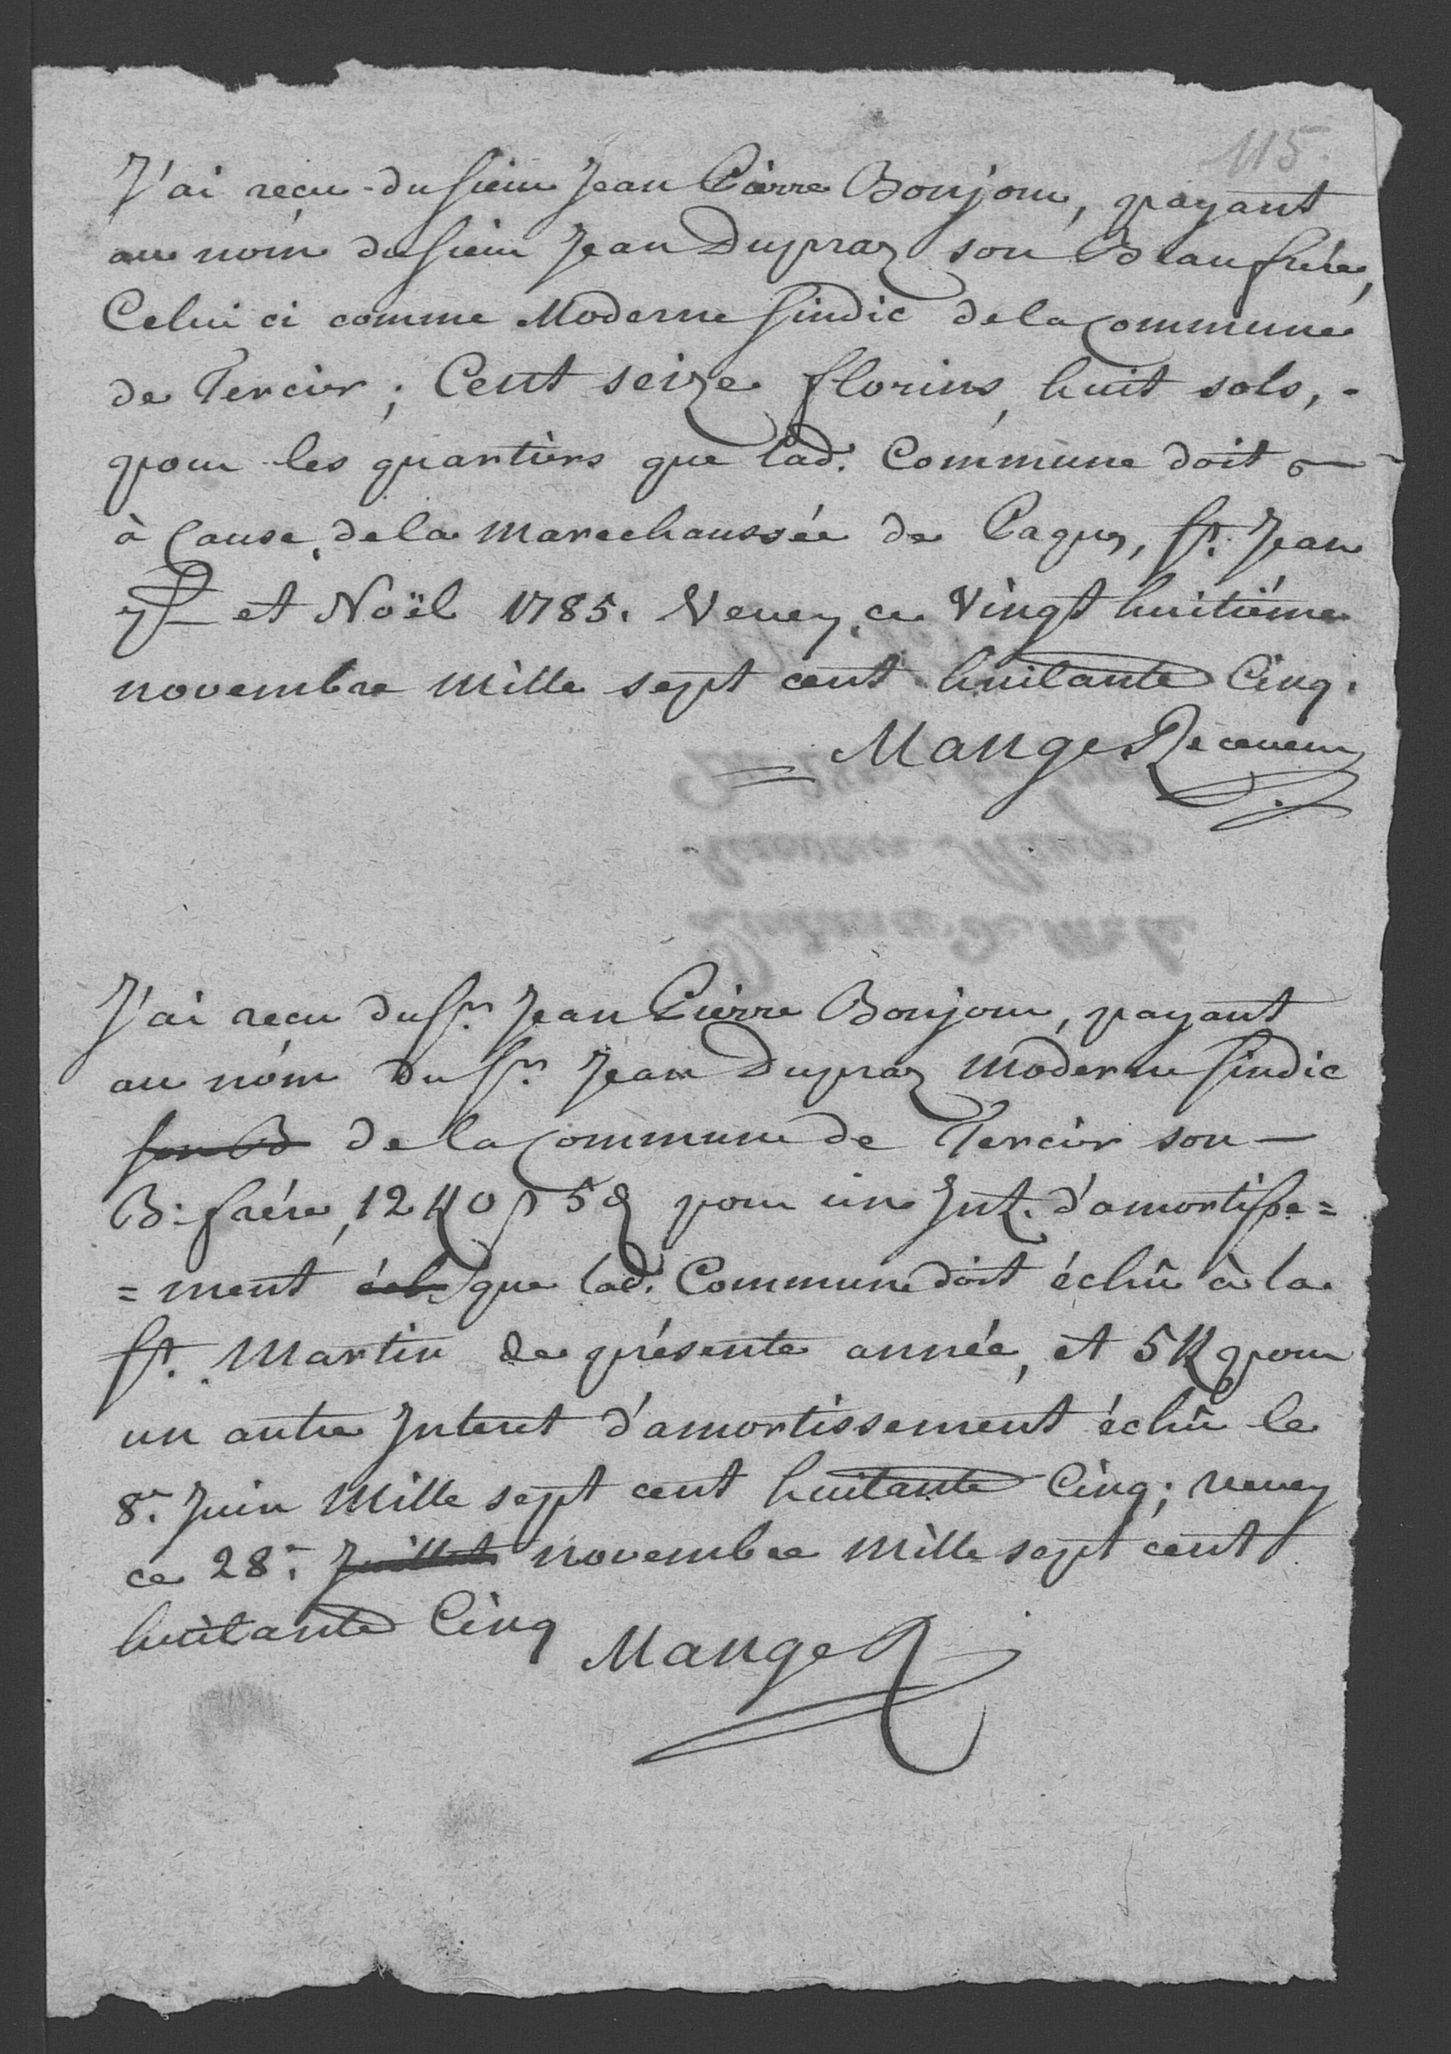 115.
J'ai recu du sieur Jean Pierre Bonjour, payant
au nom du sieur Jean Dupraz son Beaufrére,
Celui ci comme Moderne sindic de la Commune
de Tercier; Cent seize florins, huit sols, -
pour les quartiers que lad. Commune doit
à Cause de la Marechaussée de Paques, st. Jean
et Noël 1785. Vevey, ce Vingt huitiême
novembre Mille sept cent huitante Cinq.
Manges Receveur
J'ai recu du sr. Jean Pierre Bonjour, payant
au nom du sr. Jean Dupraz Moderne sindic
son B de la Commune de Tercier son -
B: frére, 12 5 pour un Int. d'amortisse=
=ment éch que lad. Commune doit échû à la
st. Martin de présente année, et 5 pour
un autre Interet d'amortissement échû le
8e. Juin Mille sept cent huitante Cinq; vevey
ce 28e. Juillet novembre Mille sept cent
huitante Cinq Mange R